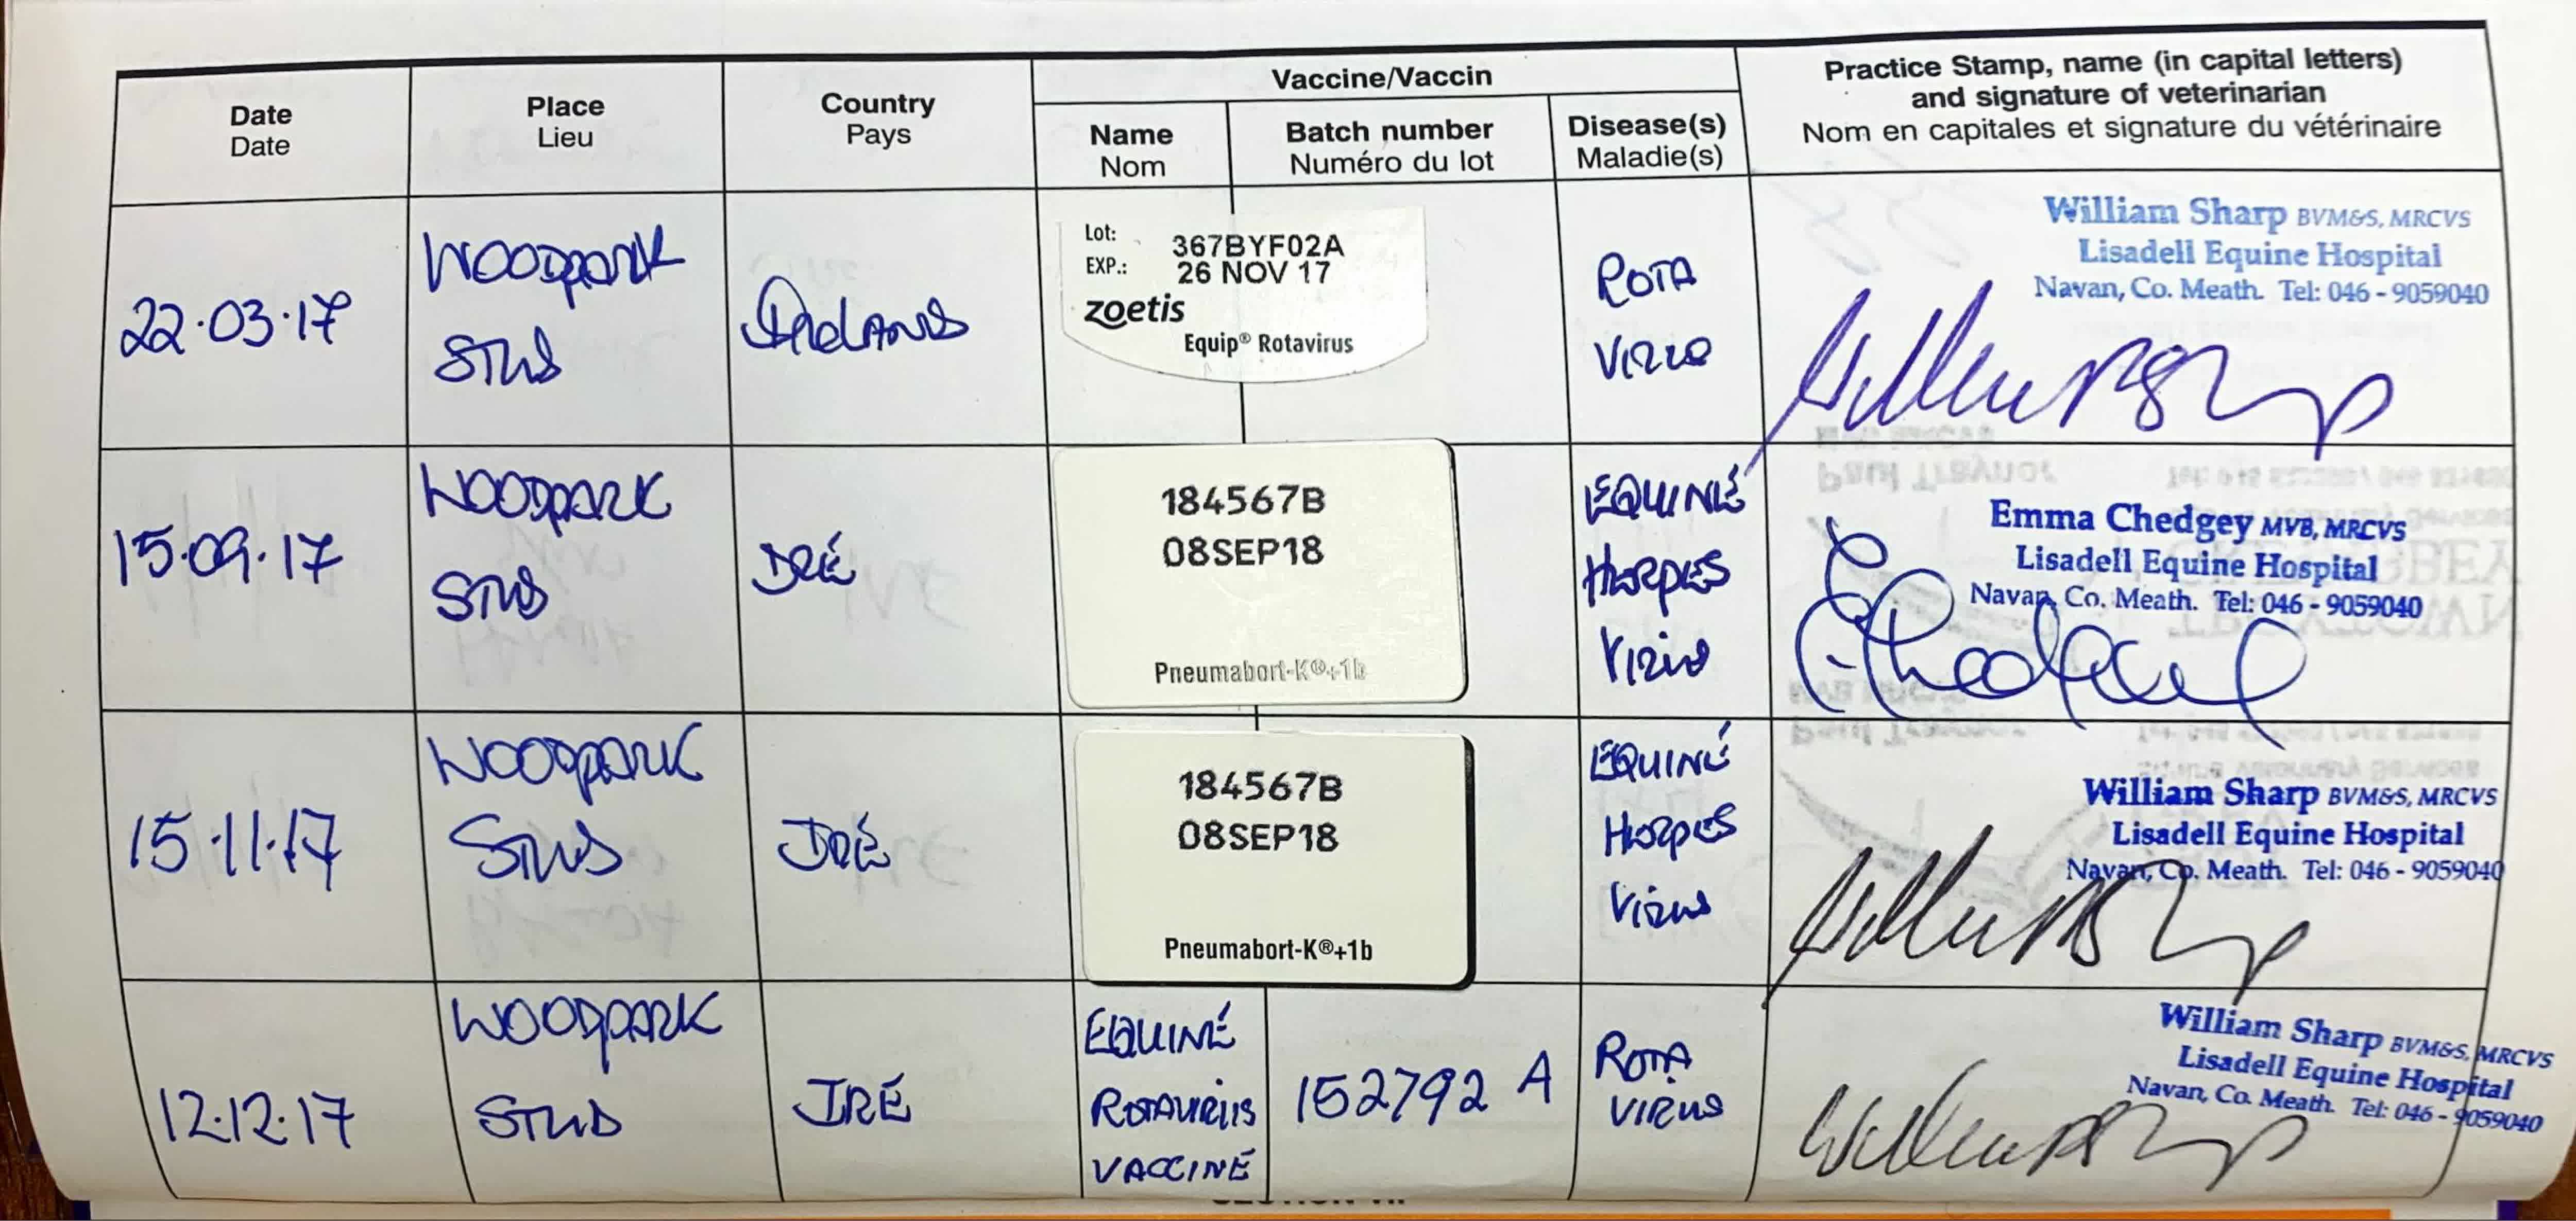 Date
Date
Place
Lieu
Country
Pays
Vaccine/Vaccin
Name
Nom
Batch number
Numéro du lot
Disease(s)
Maladie(s)
Practice Stamp, name (in capital letters)
and signature of veterinarian
Nom en capitales et signature du vétérinaire
22.03.17
WOODPARK
STUD
IRELAND
Lot: 367BYF02A
EXP.: 26 NOV 17
zoetis
Equip® Rotavirus
ROTA
VIRUS
William Sharp BVM&S, MRCVS
Lisadell Equine Hospital
Navan, Co. Meath. Tel: 046 - 9059040
15.09.17
WOODPARK
STUD
IRE
184567B
08SEP18
Pneumabort-K®+1b
EQUINE
HERPES
VIRUS
Emma Chedgey MVB, MRCVS
Lisadell Equine Hospital
Navan, Co. Meath. Tel: 046 - 9059040
15.11.17
WOODPARK
STUD
IRE
184567B
08SEP18
Pneumabort-K®+1b
EQUINE
HERPES
VIRUS
William Sharp BVM&S, MRCVS
Lisadell Equine Hospital
Navan, Co. Meath. Tel: 046 - 9059040
12.12.17
WOODPARK
STUD
IRE
EQUINE
ROTAVIRUS
VACCINE
152792 A
ROTA
VIRUS
William Sharp BVM&S, MRCVS
Lisadell Equine Hospital
Navan, Co. Meath. Tel: 046 - 9059040